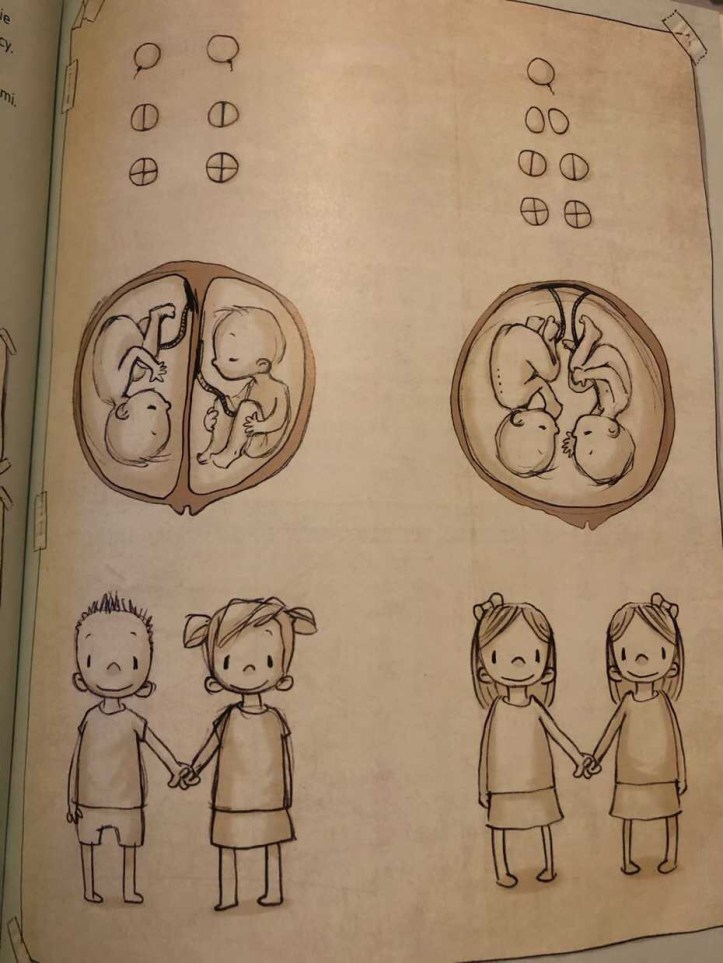 ie
cy.
mi.